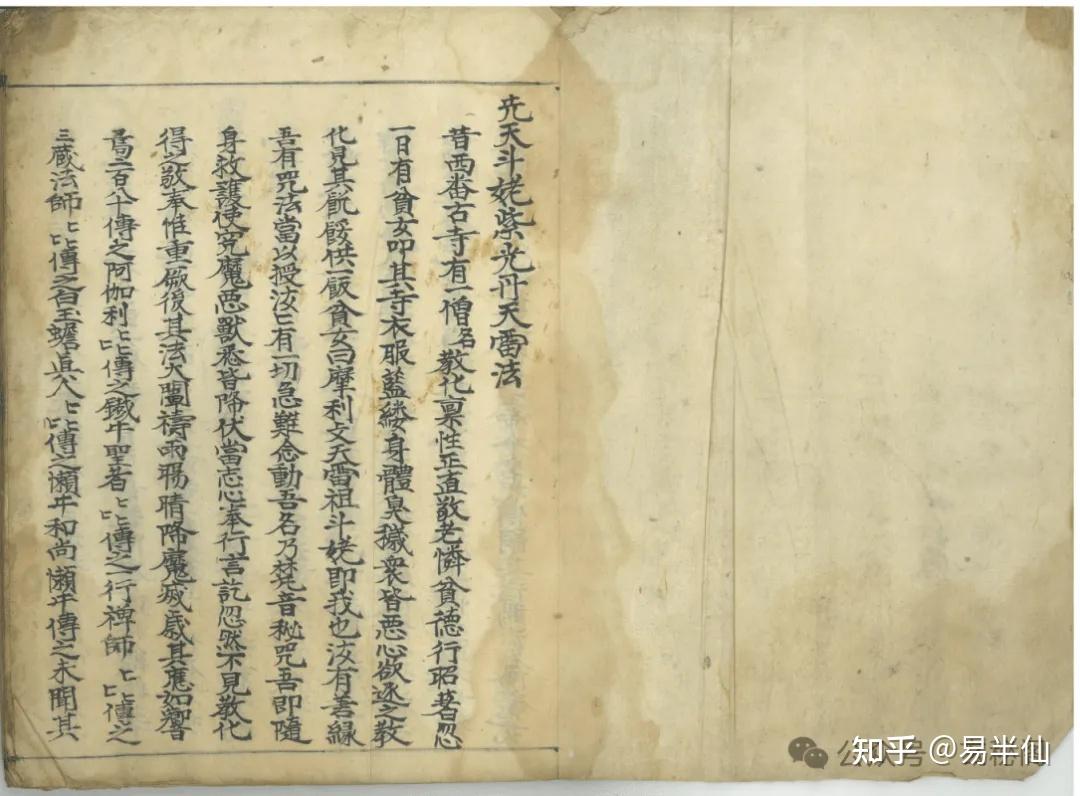 先天斗姥紫光丹天雷法
昔西番古寺有一僧名敎化禀性正直敬老憐貧德行昭著忽
一日有貧女叩其寺衣服藍縷身體臭穢衆皆惡心欲逐之敎
化見其飢餒供一飯貧女曰摩利支天雷祖斗姥即我也汝有善緣
吾有咒法當以授汝匕有一切急難念動吾名乃梵音秘咒吾即隨
身救護使穷魔惡獸悉皆降伏當志心奉行言訖忽然不見敎化
得之敬奉惟重厥後其法大闡禱雨賜晴降魔滅其應如響
焉二百八十傳之阿伽利匕匕傳之鐵牛聖者匕匕傳之一行禅師匕匕傳之
三蔵法師匕匕傳之白玉蟾真人匕匕傳之懶牛和尚懶牛傳之未聞其
知乎 @易半仙
公众号